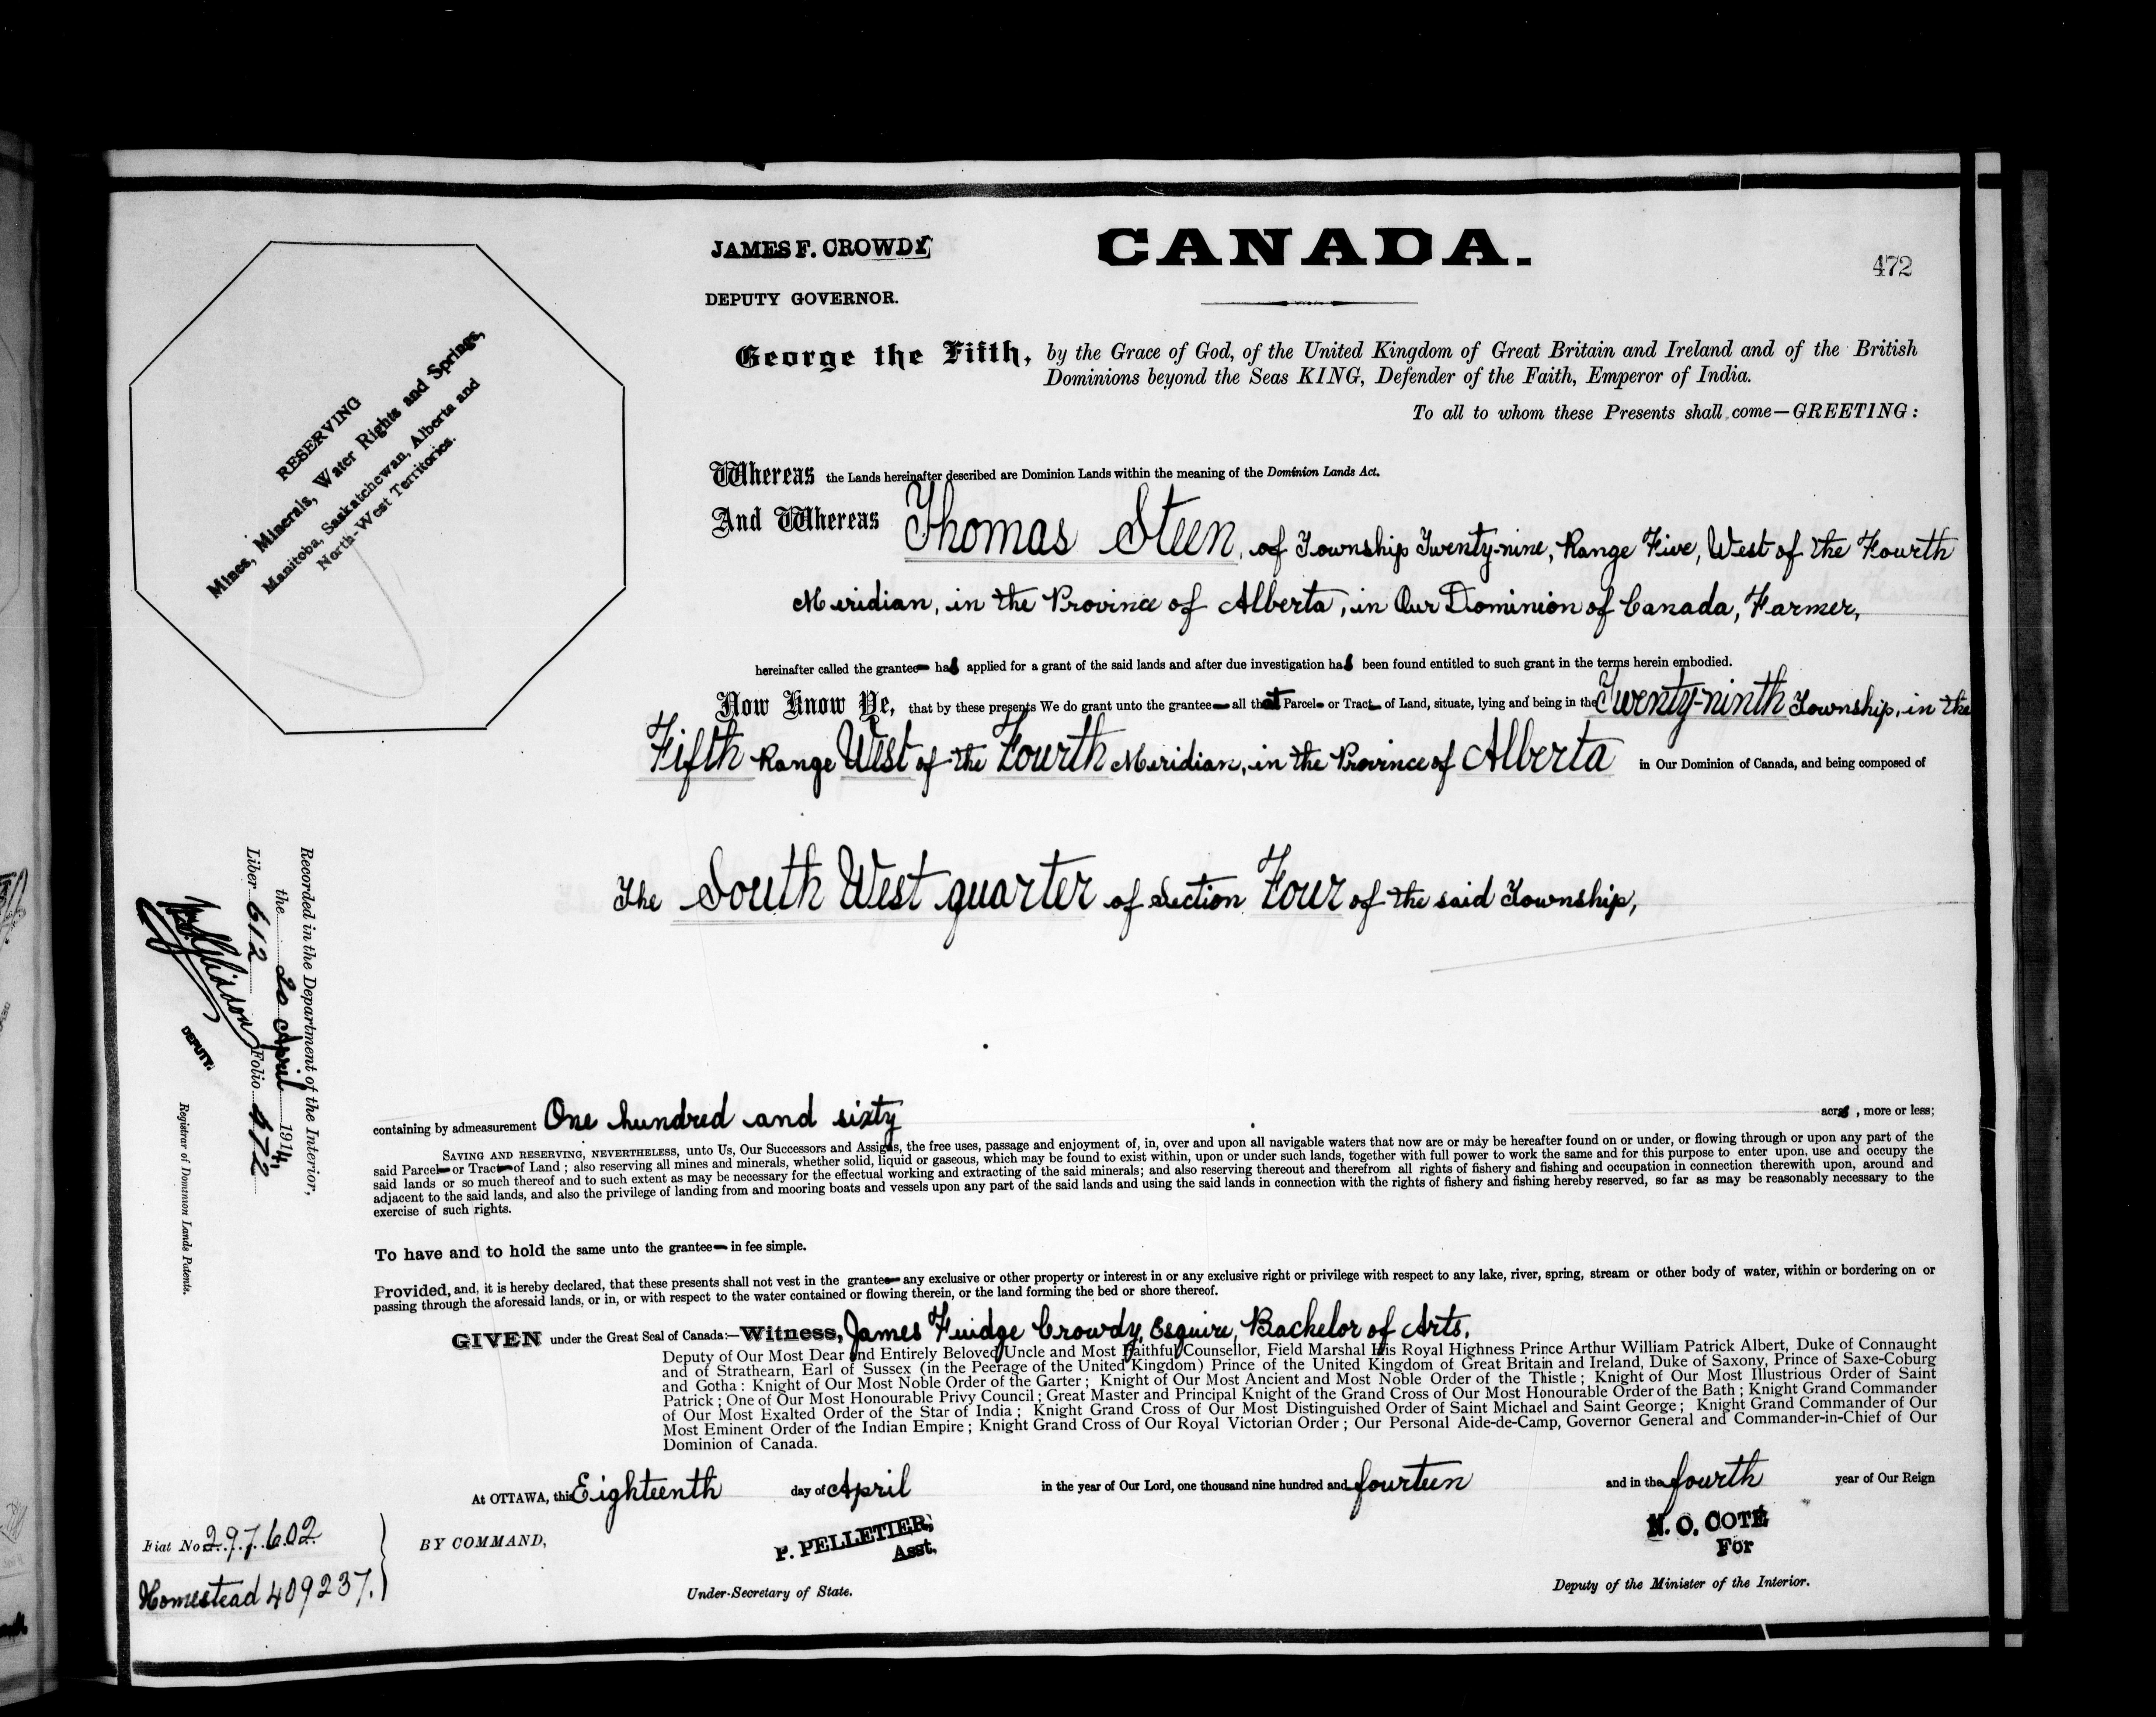 JAMES F. CROWDY
DEPUTY GOVERNOR.
CANADA.
472
George the Fifth, by the Grace of God, of the United Kingdom of Great Britain and Ireland and of the British
Dominions beyond the Seas KING, Defender of the Faith, Emperor of India.
To all to whom these Presents shall come—GREETING:
RESERVING
Mines, Minerals, Water Rights and Springs,
Manitoba, Saskatchewan, Alberta and
North-West Territories.
Whereas the Lands hereinafter described are Dominion Lands within the meaning of the Dominion Lands Act.
And Whereas Thomas Steen, of Township Twenty-nine, Range Five, West of the Fourth
Meridian, in the Province of Alberta, in Our Dominion of Canada, Farmer,
hereinafter called the grantee has applied for a grant of the said lands and after due investigation has been found entitled to such grant in the terms herein embodied.
Now Know Ye, that by these presents We do grant unto the grantee all that Parcel or Tract of Land, situate, lying and being in the Twenty-ninth Township, in the
Fifth Range West of the Fourth Meridian, in the Province of Alberta in Our Dominion of Canada, and being composed of
The South West quarter of Section Four of the said Township,
Recorded in the Department of the Interior,
the 20 April 1914,
Liber 612 Folio 472
DEPUTY.
Registrar of Dominion Lands Patents.
containing by admeasurement One hundred and sixty acres, more or less;
SAVING AND RESERVING, NEVERTHELESS, unto Us, Our Successors and Assigns, the free uses, passage and enjoyment of, in, over and upon all navigable waters that now are or may be hereafter found on or under, or flowing through or upon any part of the
said Parcel or Tract of Land; also reserving all mines and minerals, whether solid, liquid or gaseous, which may be found to exist within, upon or under such lands, together with full power to work the same and for this purpose to enter upon, use and occupy the
said lands or so much thereof and to such extent as may be necessary for the effectual working and extracting of the said minerals; and also reserving thereout and therefrom all rights of fishery and fishing and occupation in connection therewith upon, around and
adjacent to the said lands, and also the privilege of landing from and mooring boats and vessels upon any part of the said lands and using the said lands in connection with the rights of fishery and fishing hereby reserved, so far as may be reasonably necessary to the
exercise of such rights.
To have and to hold the same unto the grantee in fee simple.
Provided, and, it is hereby declared, that these presents shall not vest in the grantee any exclusive or other property or interest in or any exclusive right or privilege with respect to any lake, river, spring, stream or other body of water, within or bordering on or
passing through the aforesaid lands, or in, or with respect to the water contained or flowing therein, or the land forming the bed or shore thereof.
GIVEN under the Great Seal of Canada:—Witness, James Fuidge Crowdy, Esquire, Bachelor of Arts,
Deputy of Our Most Dear and Entirely Beloved Uncle and Most Faithful Counsellor, Field Marshal His Royal Highness Prince Arthur William Patrick Albert, Duke of Connaught
and of Strathearn, Earl of Sussex (in the Peerage of the United Kingdom) Prince of the United Kingdom of Great Britain and Ireland, Duke of Saxony, Prince of Saxe-Coburg
and Gotha: Knight of Our Most Noble Order of the Garter; Knight of Our Most Ancient and Most Noble Order of the Thistle; Knight of Our Most Illustrious Order of Saint
Patrick; One of Our Most Honourable Privy Council; Great Master and Principal Knight of the Grand Cross of Our Most Honourable Order of the Bath; Knight Grand Commander
of Our Most Exalted Order of the Star of India; Knight Grand Cross of Our Most Distinguished Order of Saint Michael and Saint George; Knight Grand Commander of Our
Most Eminent Order of the Indian Empire; Knight Grand Cross of Our Royal Victorian Order; Our Personal Aide-de-Camp, Governor General and Commander-in-Chief of Our
Dominion of Canada.
At OTTAWA, this Eighteenth day of April in the year of Our Lord, one thousand nine hundred and fourteen and in the fourth year of Our Reign
Fiat No 297602
Homestead 409237.
BY COMMAND,
P. PELLETIER,
Asst.
Under-Secretary of State.
N. O. COTE
For
Deputy of the Minister of the Interior.